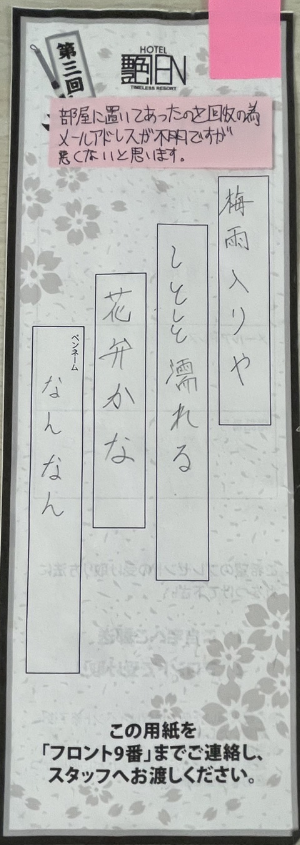 第三回
HOTEL
艶EN
TIMELESS RESORT
部屋に置いてあったのを回収の為
メールアドレスが不明ですが
悪くないと思います。
梅雨入りや
しとしと濡れる
花弁かな
ペンネーム
なんなん
この用紙を
「フロント9番」までご連絡し、
スタッフへお渡しください。